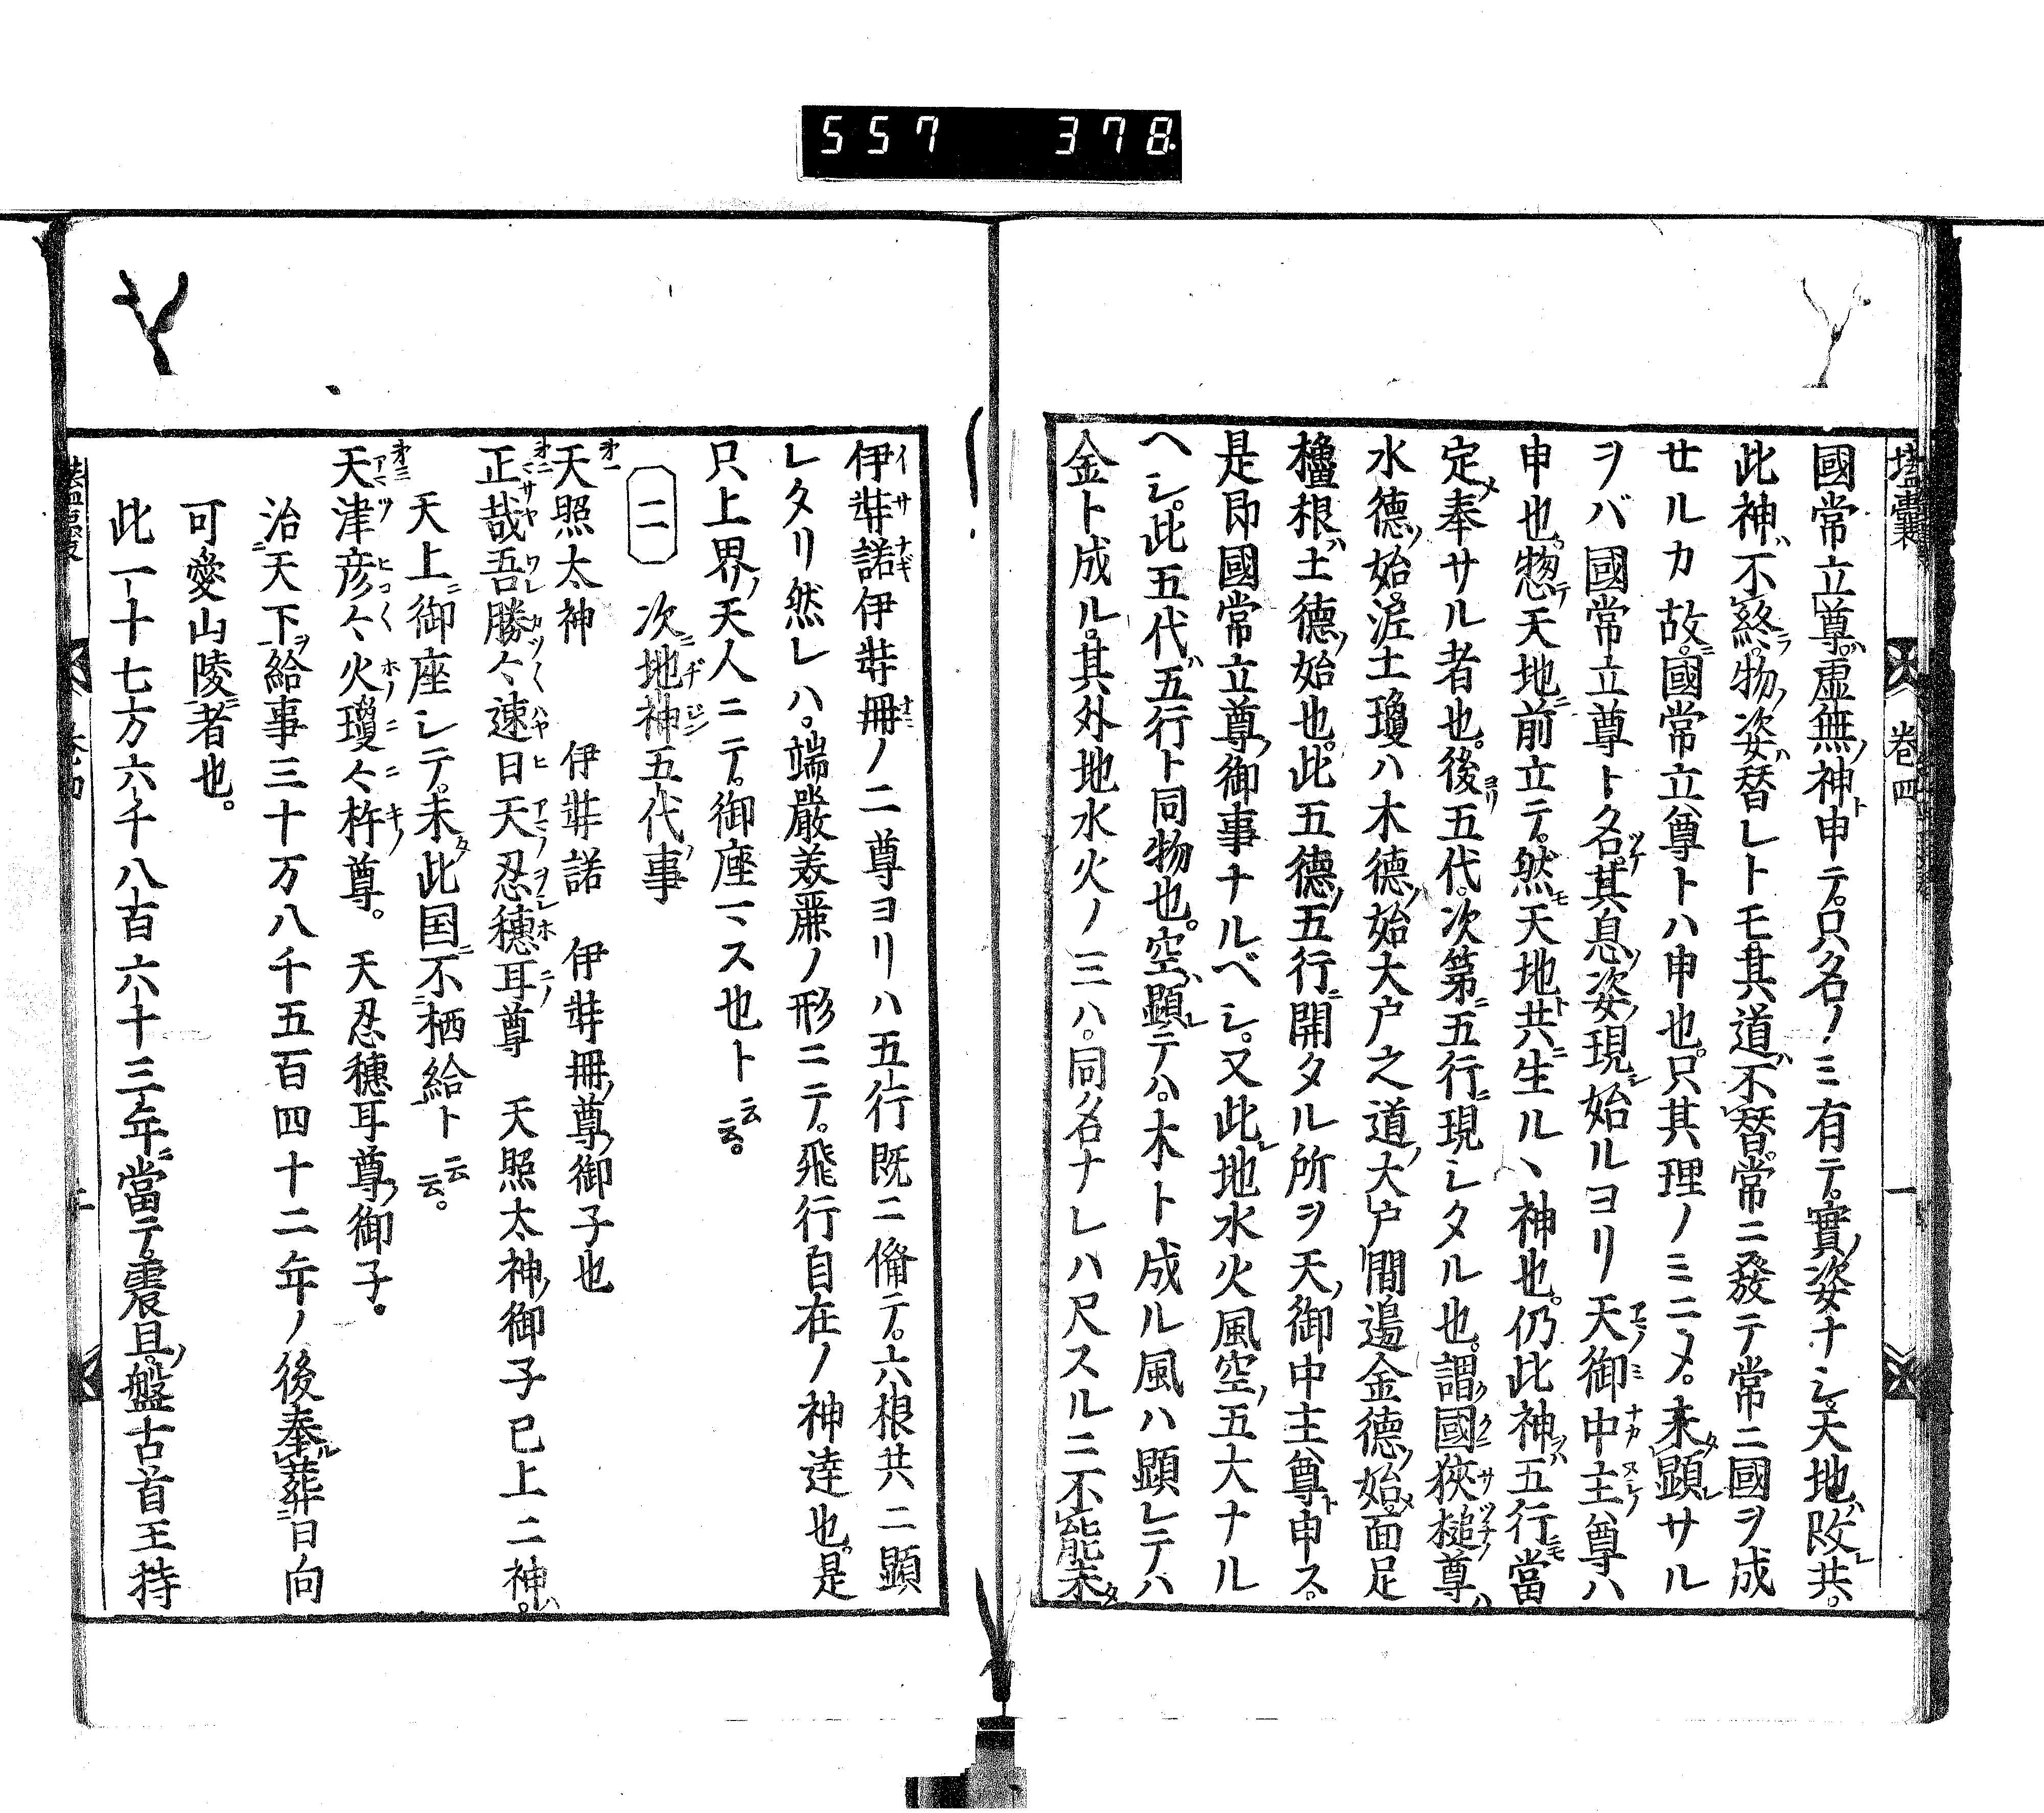 557 378
壒囊 卷四 一
國常立尊ハ虛無ノ神ト申テ。只名ノミ有テ。實ノ姿ナシ。天地ハ改レ共。
此神ハ不終。物ノ姿ハ替レトモ其道ハ不替。常ニ發テ常ニ國ヲ成
サルカ故ニ。國常立尊トハ申也。只其理ノミニメ。未タ顯レサル
ヲバ國常立尊ト名ツケ。其息ノ姿ノ現シ始ルヨリ天アマノ御ミ中ナカ主ヌシノ尊ハ
申也。惣テ天地ニ前立テ。然モ天地ト共ニ生ルヽ神也。仍此神ヲハ五行ニモ當
定メ奉サル者也。後ヨリ五代。次第ニ五行ニ現シタル也。謂ク國クニ狹サ槌ツチノ尊ハ
水德ノ始。泥土瓊ハ木德ノ始大戸之道ノ大戸間邊金德ノ始メ。面足
櫓根ハ土德ノ始也。此五德ノ五行ニ開タル所ヲ天ノ御中主尊ト申ス。
是即國常立尊ノ御事ナルベシ。又此レ地水火風空ノ五大ナル
ヘシ。此五代ハ五行ト同物也。空ハ顯レテハ。木ト成ル風ハ顯レテハ
金ト成ル。其外地水火ノ三ハ。同名ナレハ尺スルニ不能。未タ
伊弉諾イサナギ伊弉冊ナミノ二尊ヨリハ五行既ニ備テ。六根共ニ顯
レタリ然レハ。端嚴美麗ノ形ニテ。飛行自在ノ神達也。是
只上界ノ天人ニテ。御座マス也ト云云。
二 次ニ地ヂ神ジン五代ノ事
第一 天照太神 伊弉諾 伊弉冊ノ尊ノ御子也
第二 正マサ哉ヤ吾ワレ勝カツ々〱速ハヤ日ヒ天アマノ忍ヲシ穗ホ耳ミミノ尊 天照太神ノ御子已上二神ハ。
天上ニ御座シテ。未タ此国ニ不栖給ト云云。
第三 天アマ津ツ彦ヒコ々〱火ホノ瓊ニ々ニ杵キノ尊。 天忍穗耳尊ノ御子。
治天下ヲ給事三十万八千五百四十二年ノ後奉ル葬日向
可愛山陵ニ者也。
此一十七万六千八百六十三年ニ當テ。震旦ノ盤古首王持